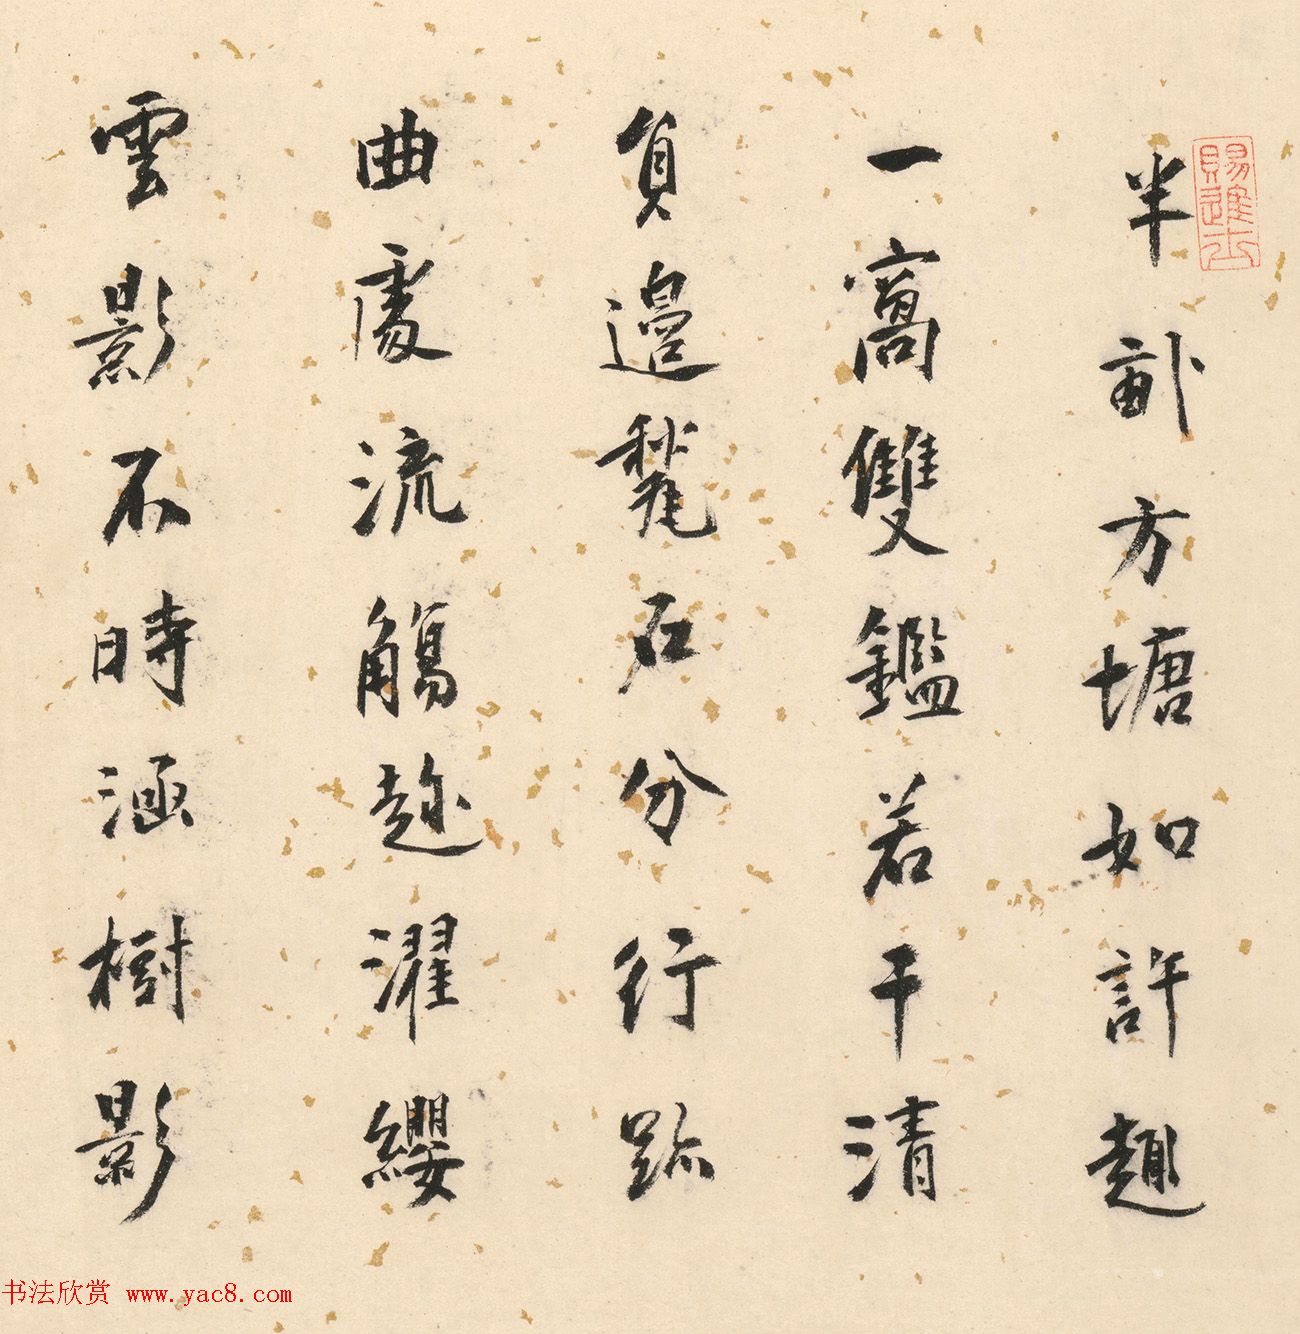 賜進士
半畝方塘如許趣
一窩雙鑑若干清
員邊甃石分行跡
曲處流觴趂濯纓
雲影不時涵樹影
书法欣赏 www.yac8.com